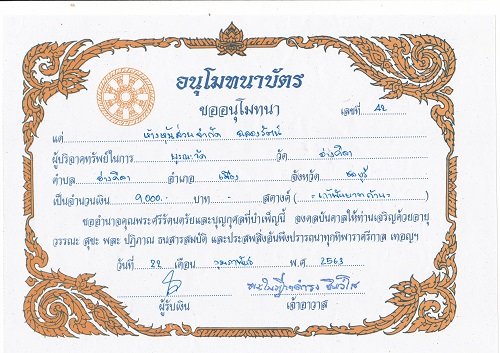 อนุโมทนาบัตร
ขออนุโมทนา
เลขที่ 42
แด่ ห้างหุ้นส่วนจำกัด
ผู้บริจาคทรัพย์ในการ บูรณะวัด วัด อ่างศิลา
ตำบล อ่างศิลา อำเภอ เมือง จังหวัด ชลบุรี
เป็นจำนวนเงิน 9,000.- บาท - สตางค์ (-เก้าพันบาทถ้วน-)
ขออำนาจคุณพระศรีรัตนตรัยและบุญกุศลที่บำเพ็ญนี้ จงดลบันดาลให้ท่านเจริญด้วยอายุ
วรรณะ สุขะ พละ ปฏิภาณ ธนสารสมบัติ และประสพสิ่งอันพึงปรารถนาทุกทิพาราตรีกาล เทอญฯ
วันที่ 22 เดือน กุมภาพันธ์ พ.ศ. 2563
ผู้รับเงิน เจ้าอาวาส